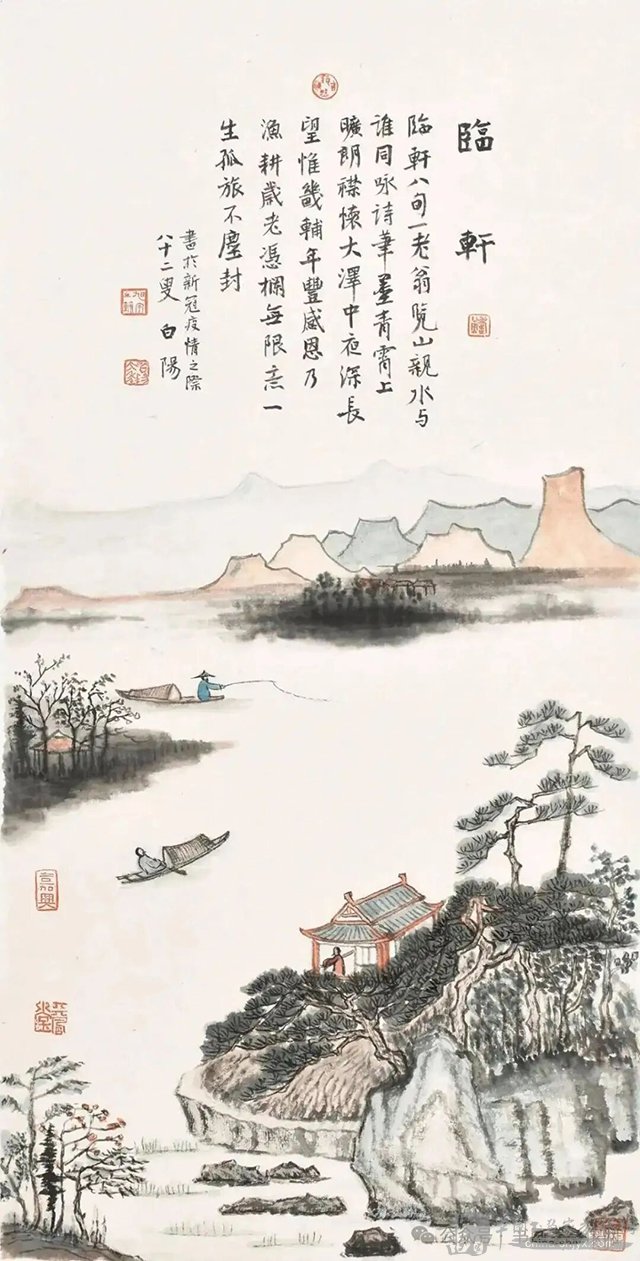 臨軒
臨軒八旬一老翁览山親水与
誰同咏诗筆墨青霄上
曠朗襟懷大澤中夜深長
望惟畿輔年豐感恩乃
漁耕歲老憑欄無限意一
生孤旅不塵封
書於新冠疫情之際
八十二叟 白陽